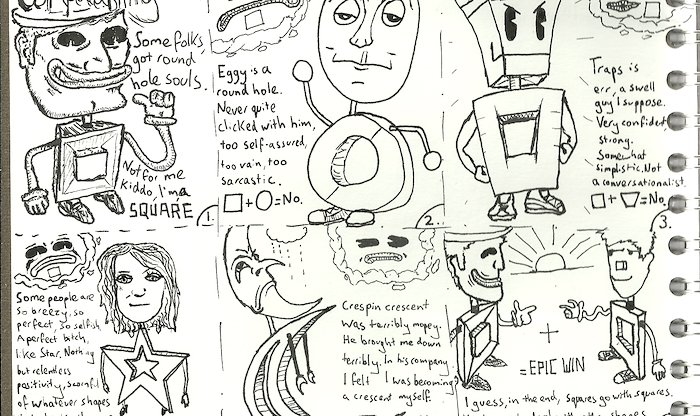 Some folks
got round
hole souls.
Not for me
kiddo, I'm a
SQUARE
1.
Eggy is a
round hole.
Never quite
clicked with him,
too self-assured,
too vain, too
sarcastic.
+ = No.
2.
Traps is
err, a swell
guy I suppose.
Very confident,
strong.
Somewhat
simplistic. Not
a conversationalist.
+ = No.
3.
Some people are
so breezy, so
perfect, so selfish.
A perfect bitch,
like Star. Nothing
but relentless
positivity, scornful
of whatever shapes
Crespin crescent
was terribly mopey.
He brought me down
terribly. In his company
I felt I was becoming
a crescent myself.
+
= EPIC WIN
I guess, in the end, squares go with squares,